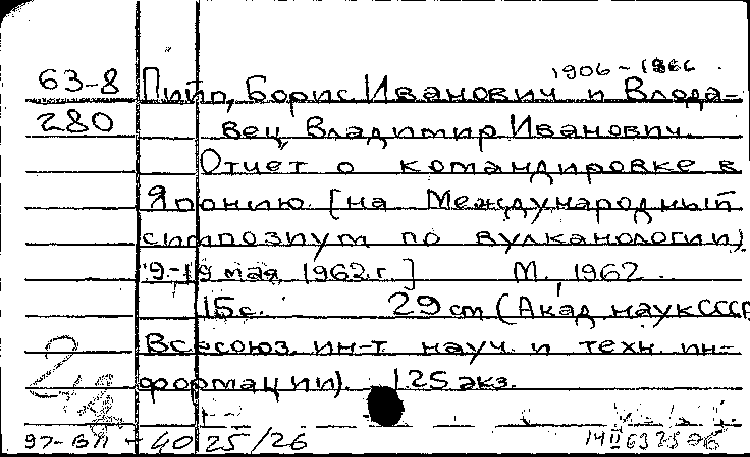 1906-1966
63-8 Пийп, Борис Иванович и Влода-
280 вец, Владимир Иванович.
Отчет о командировке в
Японию [на Международный
симпозиум по вулканологии)
9-19 мая 1962 г.] М., 1962.
15 с. 29 см (Акад. наук СССР
Всесоюз. ин-т науч. и техн. ин-
формации). 125 экз.
97-ВЛ - 40 25/26